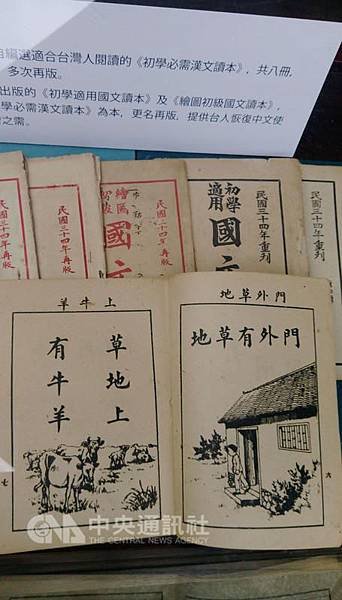 編選適合台灣人閱讀的《初學必需漢文讀本》，共八冊，
多次再版。
出版的《初學適用國文讀本》及《繪圖初級國文讀本》，
學必需漢文讀本》為本，更名再版，提供台人恢復中文使
之需。
民國三十四年重刊
初學
適用
國文
民國三十四年重刊
繪圖
初級
國文
民國三十四年再版
民國三十四年再版
門外草地
門外有草地
六
上牛羊
草地上
有牛羊
七
CNA 中央通訊社
THE CENTRAL NEWS AGENCY